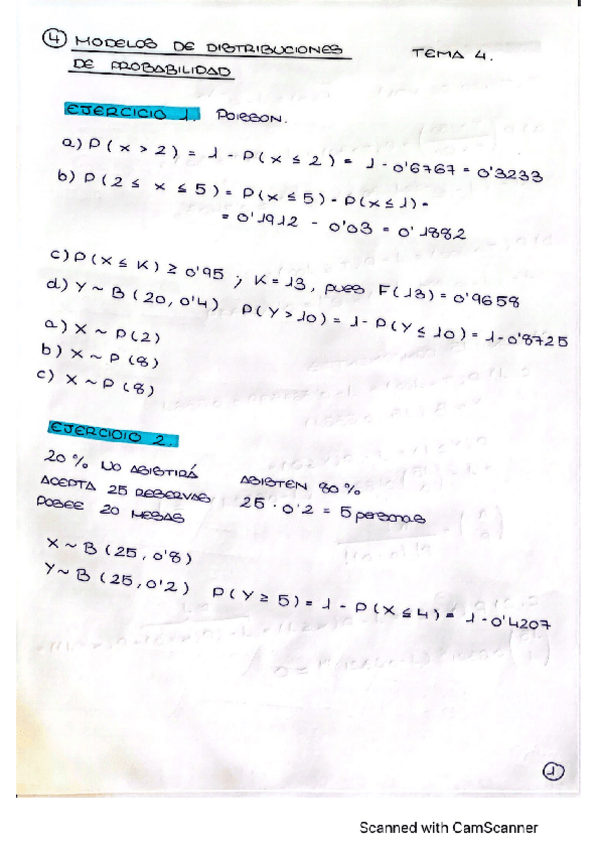 4 MODELOS DE DISTRIBUCIONES TEMA 4.
DE PROBABILIDAD
EJERCICIO 1. POISSON.
a) P(x > 2) = 1 - P(x ≤ 2) = 1 - 0'6767 = 0'3233
b) P(2 ≤ x ≤ 5) = P(x ≤ 5) - P(x ≤ 1) =
= 0'1912 - 0'03 = 0'1882
c) P(X ≤ K) ≥ 0'95 ; K = 13, pues F(13) = 0'9658
d) Y ~ B(20, 0'4) P(Y > 10) = 1 - P(Y ≤ 10) = 1 - 0'8725
a) X ~ P(2)
b) X ~ P(8)
c) X ~ P(8)
EJERCICIO 2.
20% NO ASISTIRÁ ASISTEN 80%
ACEPTA 25 RESERVAS 25 · 0'2 = 5 personas
POSEE 20 MESAS
X ~ B(25, 0'8)
Y ~ B(25, 0'2) P(Y ≥ 5) = 1 - P(X ≤ 4) = 1 - 0'4207
1
Scanned with CamScanner